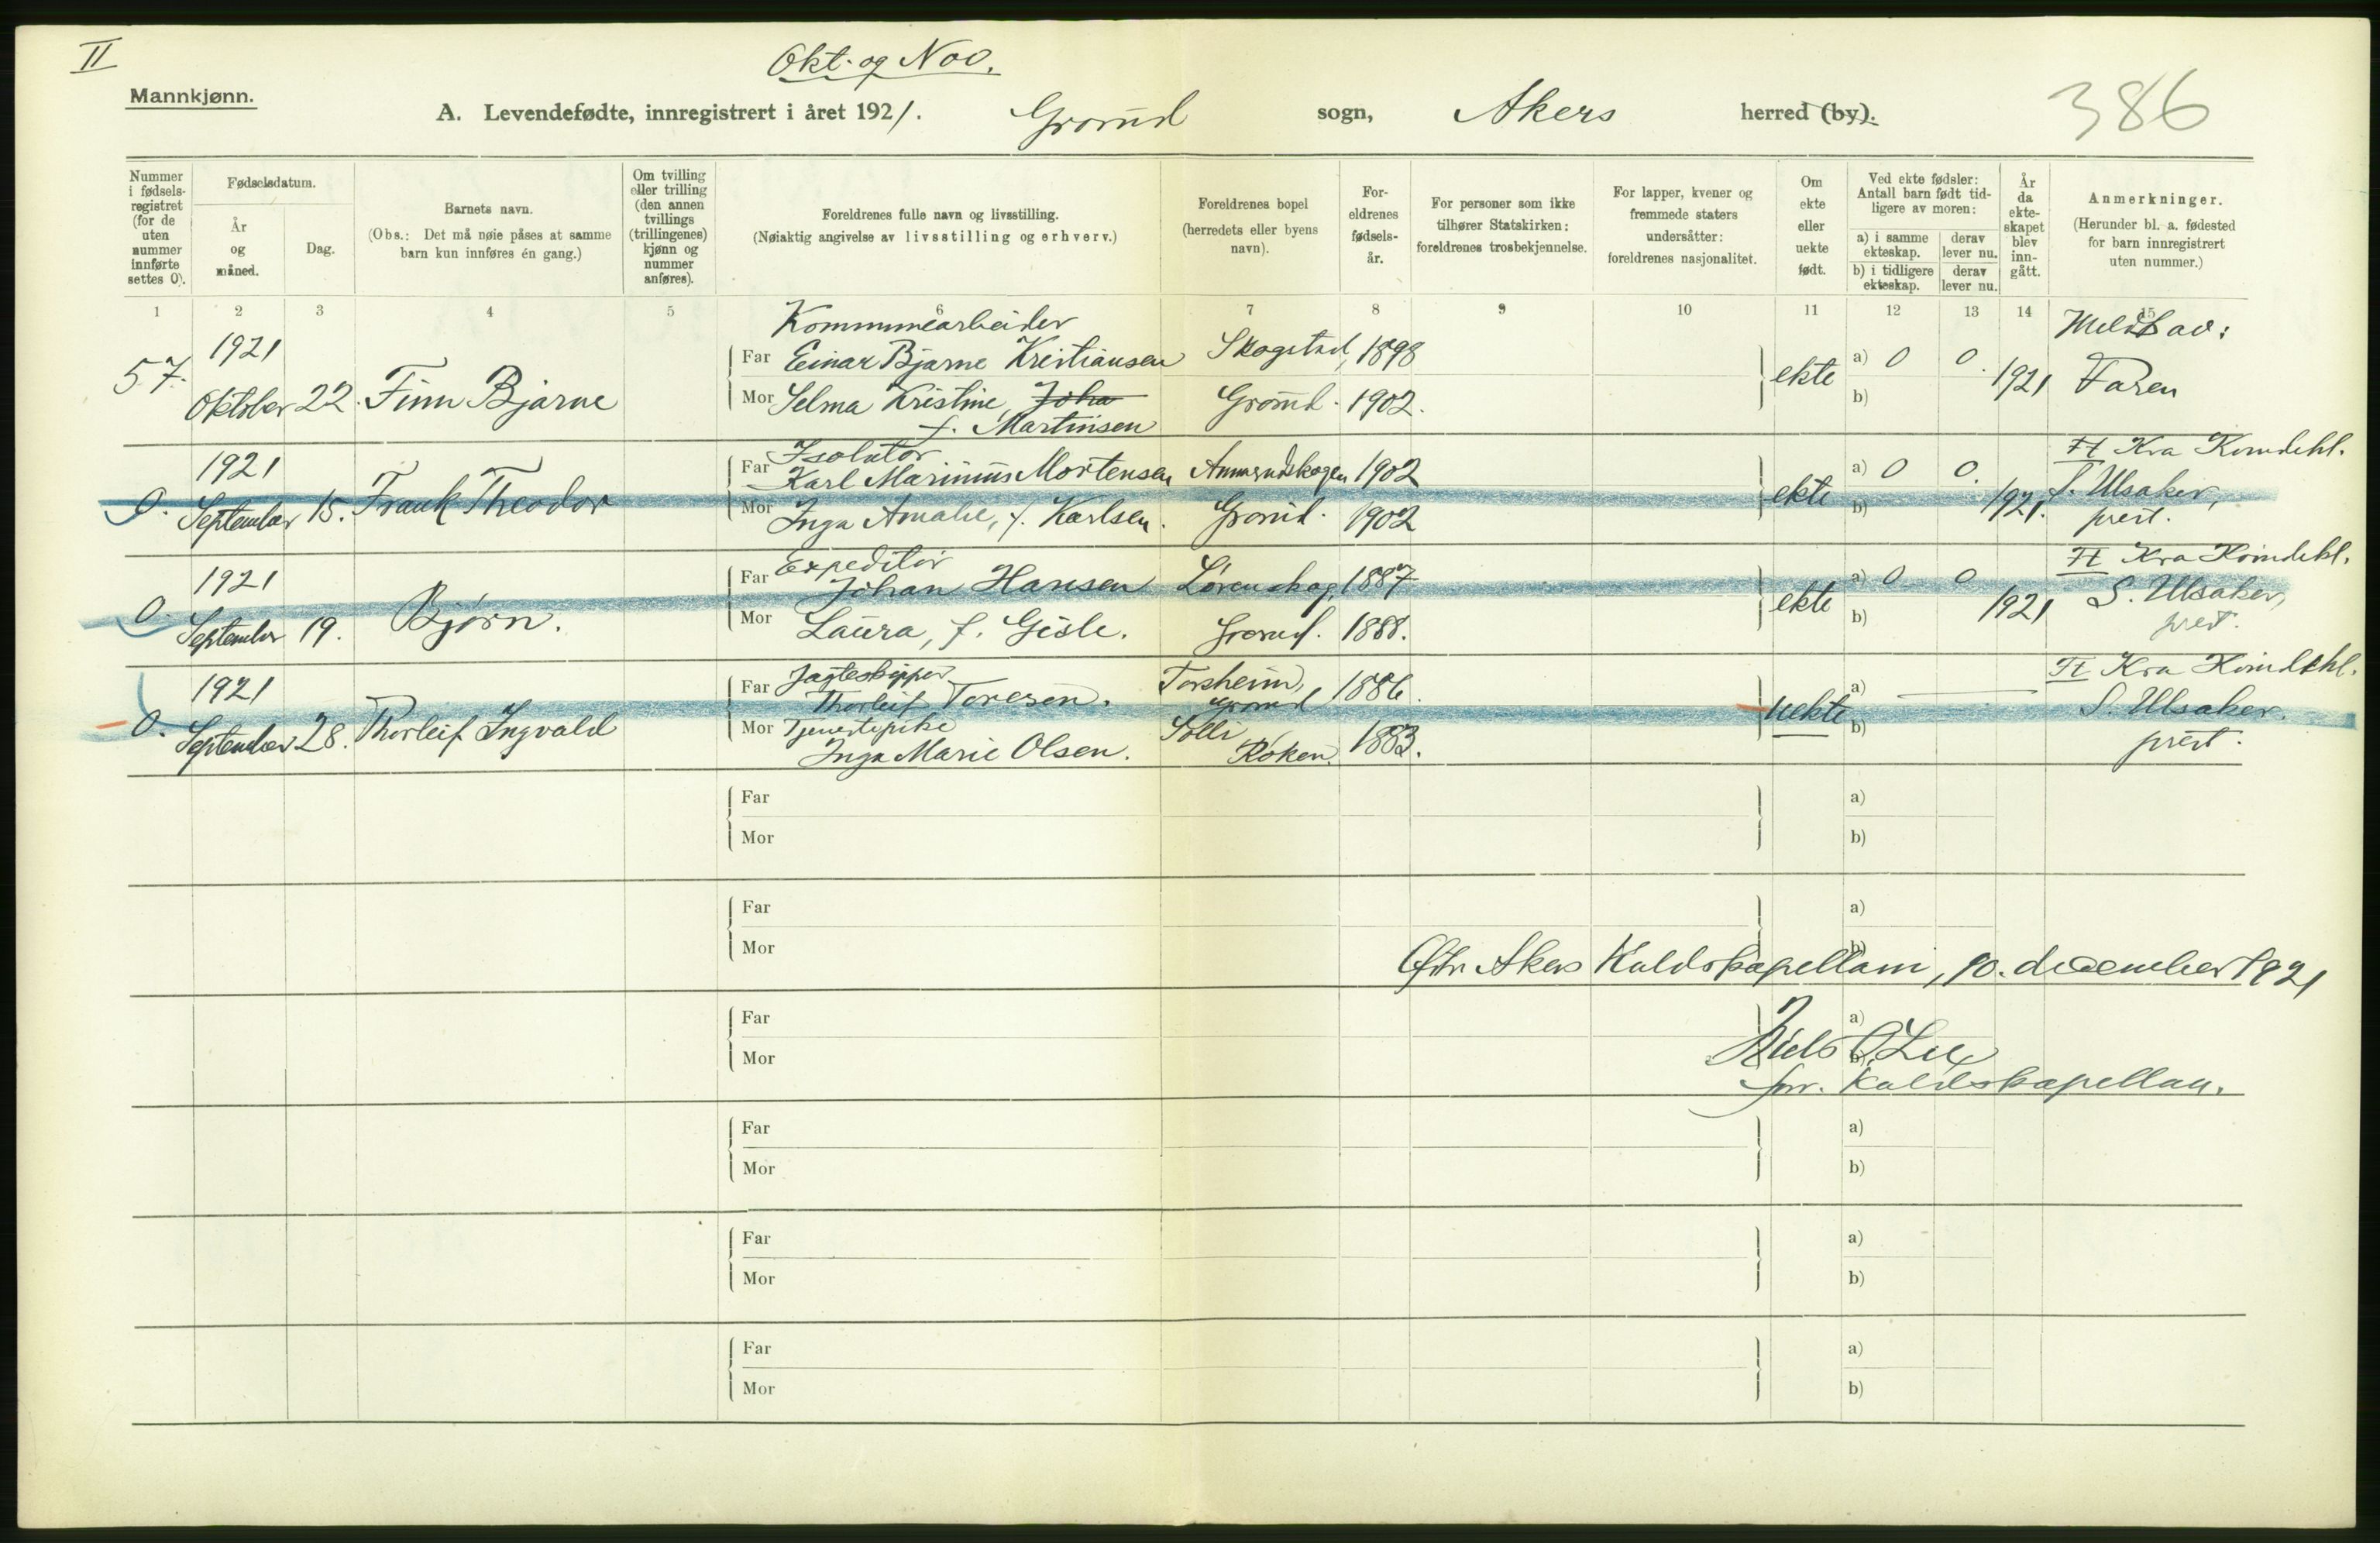 II
Okt. og Nov.
Mannkjønn.
A. Levendefødte, innregistrert i året 1921. Grorud sogn, Akers herred (by).
386
Nummer i fødselsregistret (for de uten nummer innførte settes 0).
Fødselsdatum.
År og måned.
Dag.
Barnets navn.
(Obs.: Det må nøie påses at samme barn kun innføres én gang.)
Om tvilling eller trilling (den annen tvillings (trillingenes) kjønn og nummer anføres).
Foreldrenes fulle navn og livsstilling.
(Nøiaktig angivelse av livsstilling og erhverv.)
Foreldrenes bopel (herredets eller byens navn).
Foreldrenes fødselsår.
For personer som ikke tilhører Statskirken: foreldrenes trosbekjennelse.
For lapper, kvener og fremmede staters undersåtter: foreldrenes nasjonalitet.
Om ekte eller uekte født.
Ved ekte fødsler: Antall barn født tidligere av moren:
a) i samme ekteskap. derav lever nu.
b) i tidligere ekteskap. derav lever nu.
År da ekteskapet blev inngått.
Anmerkninger.
(Herunder bl. a. fødested for barn innregistrert uten nummer.)
1 2 3 4 5 6 7 8 9 10 11 12 13 14 15
Kommunearbeider Meldt av:
57. 1921 Far Einar Bjarne Kristiansen Skogstad, 1898 ekte a) 0 0. 1921 Faren
Oktober 22. Finn Bjarne Mor Selma Kristine, Joha Grorud. 1902. b)
f. Martinsen
Isolatør Ft Kra Kvindekl.
0. 1921 Far Karl Marinius Mortensen Ammerudskogen 1902 ekte a) 0 0. 1921. S. Ulsaker,
September 15. Frank Theodor Mor Inga Amalie, f. Karlsen. Grorud. 1902 b) prest.
Expeditør Ft Kra Kvindekl.
0. 1921 Far Johan Hansen Lørenskog, 1887 ekte a) 0 0 1921 S. Ulsaker,
September 19. Bjørn. Mor Laura, f. Gisle. Grorud. 1888. b) prest.
Jagteskipper Torsheim, Ft Kra Kvindekl.
0. 1921 Far Thorleif Toresen. Grorud 1886. uekte a) S. Ulsaker.
September 28. Thorleif Ingvald Mor Tjenestepike Solli b) prest.
Inga Marie Olsen. Røken. 1883.
Far a)
Mor b)
Far a)
Mor b)
Østr Akers Kaldskapellani, 10. december 1921
Far a)
Niels O Lie
Mor b)
Kaldskapellan.
Far a)
Mor b)
Far a)
Mor b)
Far a)
Mor b)